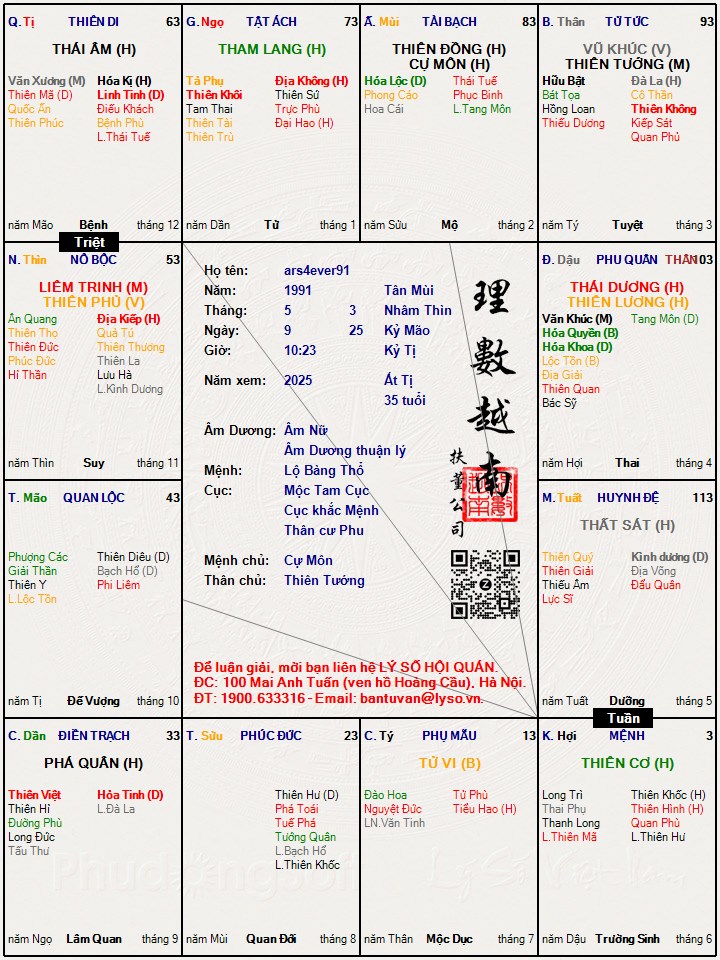 Q. Tị THIÊN DI 63
THÁI ÂM (H)
Văn Xương (M) Hóa Kị (H)
Thiên Mã (D) Linh Tinh (D)
Quốc Ấn Điếu Khách
Thiên Phúc Bệnh Phù
L.Thái Tuế
năm Mão Bệnh tháng 12
G. Ngọ TẬT ÁCH 73
THAM LANG (H)
Tả Phụ Địa Không (H)
Thiên Khôi Thiên Sứ
Tam Thai Trực Phù
Thiên Tài Đại Hao (H)
Thiên Trù
năm Dần Tử tháng 1
Ấ. Mùi TÀI BẠCH 83
THIÊN ĐỒNG (H)
CỰ MÔN (H)
Hóa Lộc (D) Thái Tuế
Phong Cáo Phục Binh
Hoa Cái L.Tang Môn
năm Sửu Mộ tháng 2
B. Thân TỬ TỨC 93
VŨ KHÚC (V)
THIÊN TƯỚNG (M)
Hữu Bật Đà La (H)
Bát Tọa Cô Thần
Hồng Loan Thiên Không
Thiếu Dương Kiếp Sát
Quan Phủ
năm Tý Tuyệt tháng 3
Triệt
N. Thìn NÔ BỘC 53
LIÊM TRINH (M)
THIÊN PHỦ (V)
Ân Quang Địa Kiếp (H)
Thiên Thọ Quả Tú
Thiên Đức Thiên Thương
Phúc Đức Thiên La
Hỉ Thần Lưu Hà
L.Kình Dương
năm Thìn Suy tháng 11
Họ tên: ars4ever91
Năm: 1991 Tân Mùi
Tháng: 5 3 Nhâm Thìn
Ngày: 9 25 Kỷ Mão
Giờ: 10:23 Kỷ Tị
Năm xem: 2025 Ất Tị
35 tuổi
Âm Dương: Âm Nữ
Âm Dương thuận lý
Mệnh: Lộ Bàng Thổ
Cục: Mộc Tam Cục
Cục khắc Mệnh
Thân cư Phu
Mệnh chủ: Cự Môn
Thân chủ: Thiên Tướng
理數越南
扶董公司
Để luận giải, mời bạn liên hệ LÝ SỐ HỘI QUÁN.
ĐC: 100 Mai Anh Tuấn (ven hồ Hoàng Cầu), Hà Nội.
ĐT: 1900.633316 - Email: bantuvan@lyso.vn.
Đ. Dậu PHU QUÂN THÂN 103
THÁI DƯƠNG (H)
THIÊN LƯƠNG (H)
Văn Khúc (M) Tang Môn (D)
Hóa Quyền (B)
Hóa Khoa (D)
Lộc Tồn (B)
Địa Giải
Thiên Quan
Bác Sỹ
năm Hợi Thai tháng 4
T. Mão QUAN LỘC 43
Phượng Các Thiên Diêu (D)
Giải Thần Bạch Hổ (D)
Thiên Y Phi Liêm
L.Lộc Tồn
năm Tị Đế Vượng tháng 10
M. Tuất HUYNH ĐỆ 113
THẤT SÁT (H)
Thiên Quý Kình dương (D)
Thiên Giải Địa Võng
Thiếu Âm Đẩu Quân
Lực Sĩ
năm Tuất Dưỡng tháng 5
Tuần
C. Dần ĐIỀN TRẠCH 33
PHÁ QUÂN (H)
Thiên Việt Hỏa Tinh (D)
Thiên Hỉ L.Đà La
Đường Phù
Long Đức
Tấu Thư
năm Ngọ Lâm Quan tháng 9
T. Sửu PHÚC ĐỨC 23
Thiên Hư (D)
Phá Toái
Tuế Phá
Tướng Quân
L.Bạch Hổ
L.Thiên Khốc
năm Mùi Quan Đới tháng 8
C. Tý PHỤ MẪU 13
TỬ VI (B)
Đào Hoa Tử Phù
Nguyệt Đức Tiểu Hao (H)
LN.Văn Tinh
năm Thân Mộc Dục tháng 7
K. Hợi MỆNH 3
THIÊN CƠ (H)
Long Trì Thiên Khốc (H)
Thai Phụ Thiên Hình (H)
Thanh Long Quan Phù
L.Thiên Mã L.Thiên Hư
năm Dậu Trường Sinh tháng 6
Phudongsoft
Lý Số Việt Nam